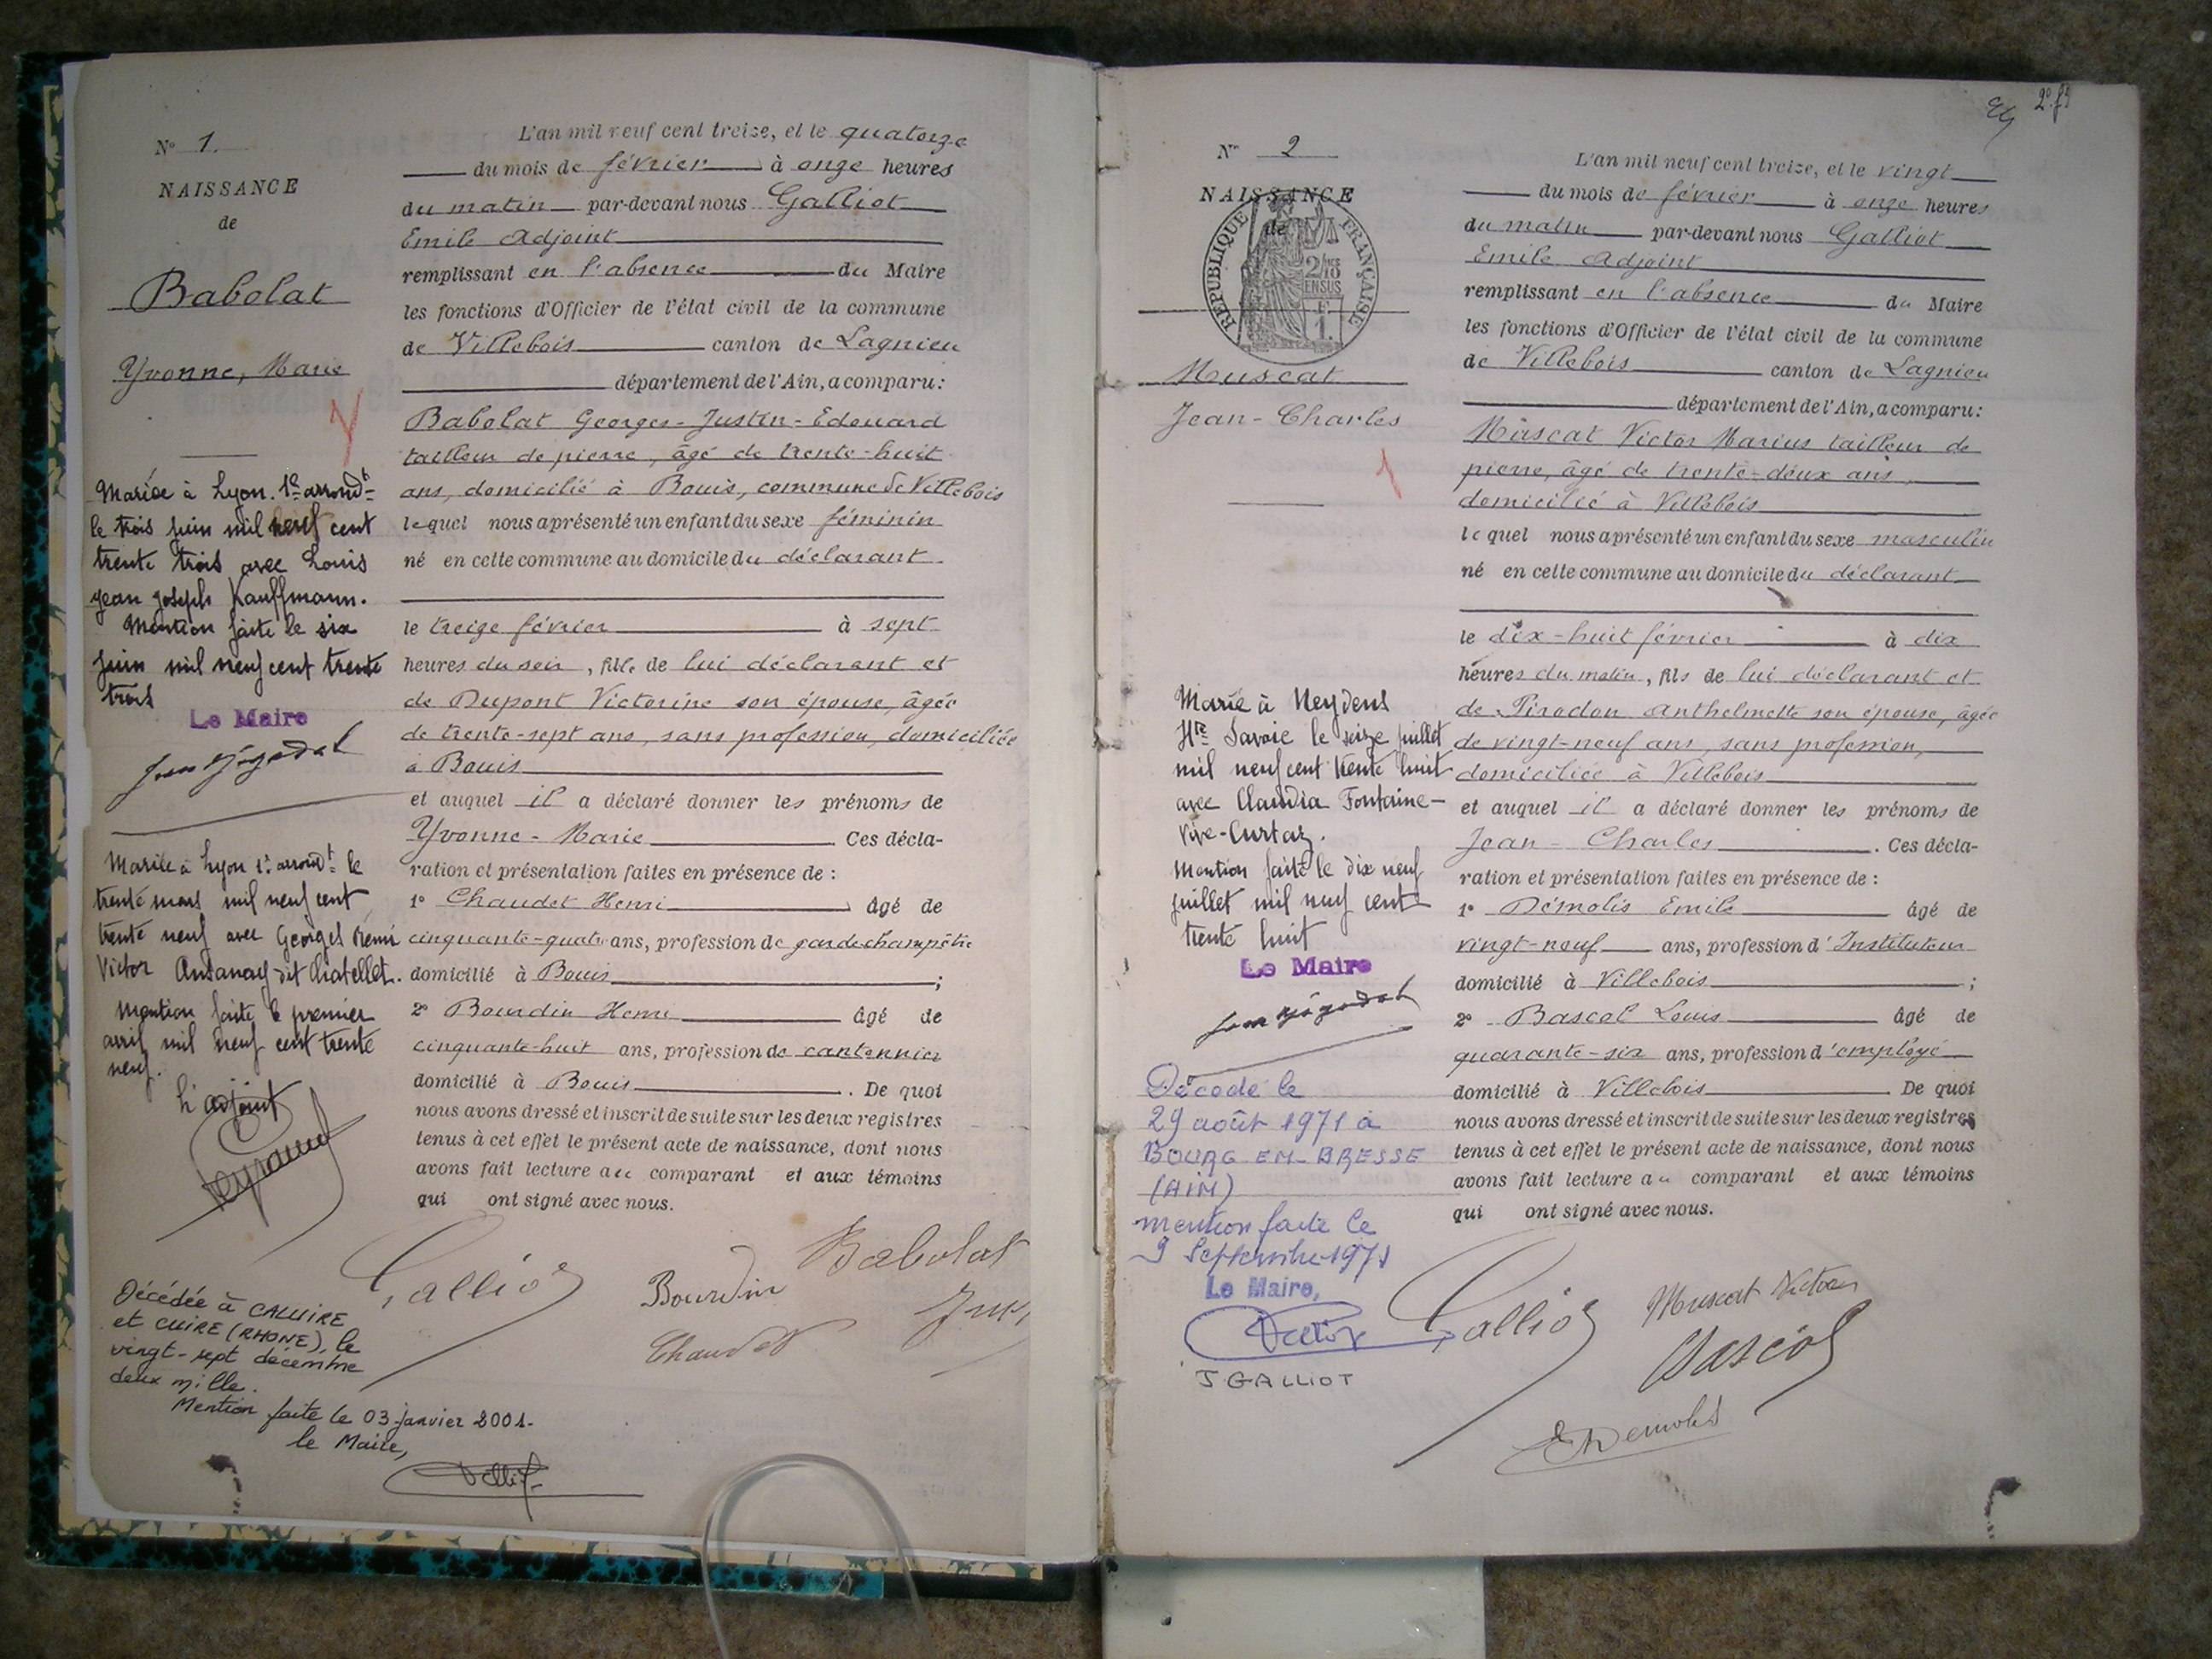 N° 1.
NAISSANCE
de
Babolat
Yvonne, Marie
Mariée à Lyon. 1er arrondt
le trois juin mil neuf cent
trente trois avec Louis
Jean Joseph Kauffmann.
Mention faite le six
juin mil neuf cent trente
trois
Le Maire
Mariée à Lyon 1er arrondt le
trente mars mil neuf cent
trente neuf avec Georges Rémi
Victor dit Chatellet.
Mention faite le premier
avril mil neuf cent trente
neuf.
L'adjoint
Décédée à CALUIRE
et CUIRE (RHONE), le
vingt-sept décembre
deux mille.
Mention faite le 03 janvier 2001.
le Maire,
L'an mil neuf cent treize, et le quatorze
du mois de février à onze heures
du matin par-devant nous Galliot
Emile Adjoint
remplissant en l'absence du Maire
les fonctions d'Officier de l'état civil de la commune
de Villebois canton de Lagnieu
département de l'Ain, a comparu:
Babolat Georges-Justin-Edouard
tailleur de pierre, âgé de trente-huit
ans, domicilié à Bouis, commune de Villebois
lequel nous a présenté un enfant du sexe féminin
né en cette commune au domicile du déclarant
le treize février à sept
heures du soir, fille de lui déclarant et
de Dupont Victorine son épouse, âgée
de trente-sept ans, sans profession, domiciliée
à Bouis
et auquel il a déclaré donner les prénoms de
Yvonne-Marie Ces décla-
ration et présentation faites en présence de :
1° Chaudet Henri âgé de
cinquante-quatre ans, profession de garde champêtre
domicilié à Bouis ;
2° Bourdin Henri âgé de
cinquante-huit ans, profession de cantonnier
domicilié à Bouis . De quoi
nous avons dressé et inscrit de suite sur les deux registres
tenus à cet effet le présent acte de naissance, dont nous
avons fait lecture au comparant et aux témoins
qui ont signé avec nous.
Galliot
Bourdin
Babolat
Chaudet
2e f
N° 2
NAISSANCE
de
REPUBLIQUE FRANÇAISE
2/10 EN SUS
Muscat
Jean-Charles
Marié à Neydens
Hte Savoie le seize juillet
mil neuf cent trente huit
avec Claudia Fontaine-
Vive-Curtaz.
Mention faite le dix neuf
juillet mil neuf cent
trente huit
Le Maire
Décédé le
29 août 1971 à
BOURG EN BRESSE
(AIN)
mention faite le
9 Septembre 1971
Le Maire,
J GALLIOT
L'an mil neuf cent treize, et le vingt
du mois de février à onze heures
du matin par-devant nous Galliot
Emile Adjoint
remplissant en l'absence du Maire
les fonctions d'Officier de l'état civil de la commune
de Villebois canton de Lagnieu
département de l'Ain, a comparu:
Muscat Victor Marius tailleur de
pierre, âgé de trente-deux ans,
domicilié à Villebois
lequel nous a présenté un enfant du sexe masculin
né en cette commune au domicile du déclarant
le dix-huit février à dix
heures du matin, fils de lui déclarant et
de Pirodon Anthelmette son épouse, âgée
de vingt-neuf ans, sans profession,
domiciliée à Villebois
et auquel il a déclaré donner les prénoms de
Jean-Charles . Ces décla-
ration et présentation faites en présence de :
1° Démolis Emile âgé de
vingt-neuf ans, profession d'Instituteur
domicilié à Villebois ;
2° Bascol Louis âgé de
quarante-six ans, profession d'employé
domicilié à Villebois . De quoi
nous avons dressé et inscrit de suite sur les deux registres
tenus à cet effet le présent acte de naissance, dont nous
avons fait lecture au comparant et aux témoins
qui ont signé avec nous.
Galliot
Muscat Victor
Bascol
E Démolis